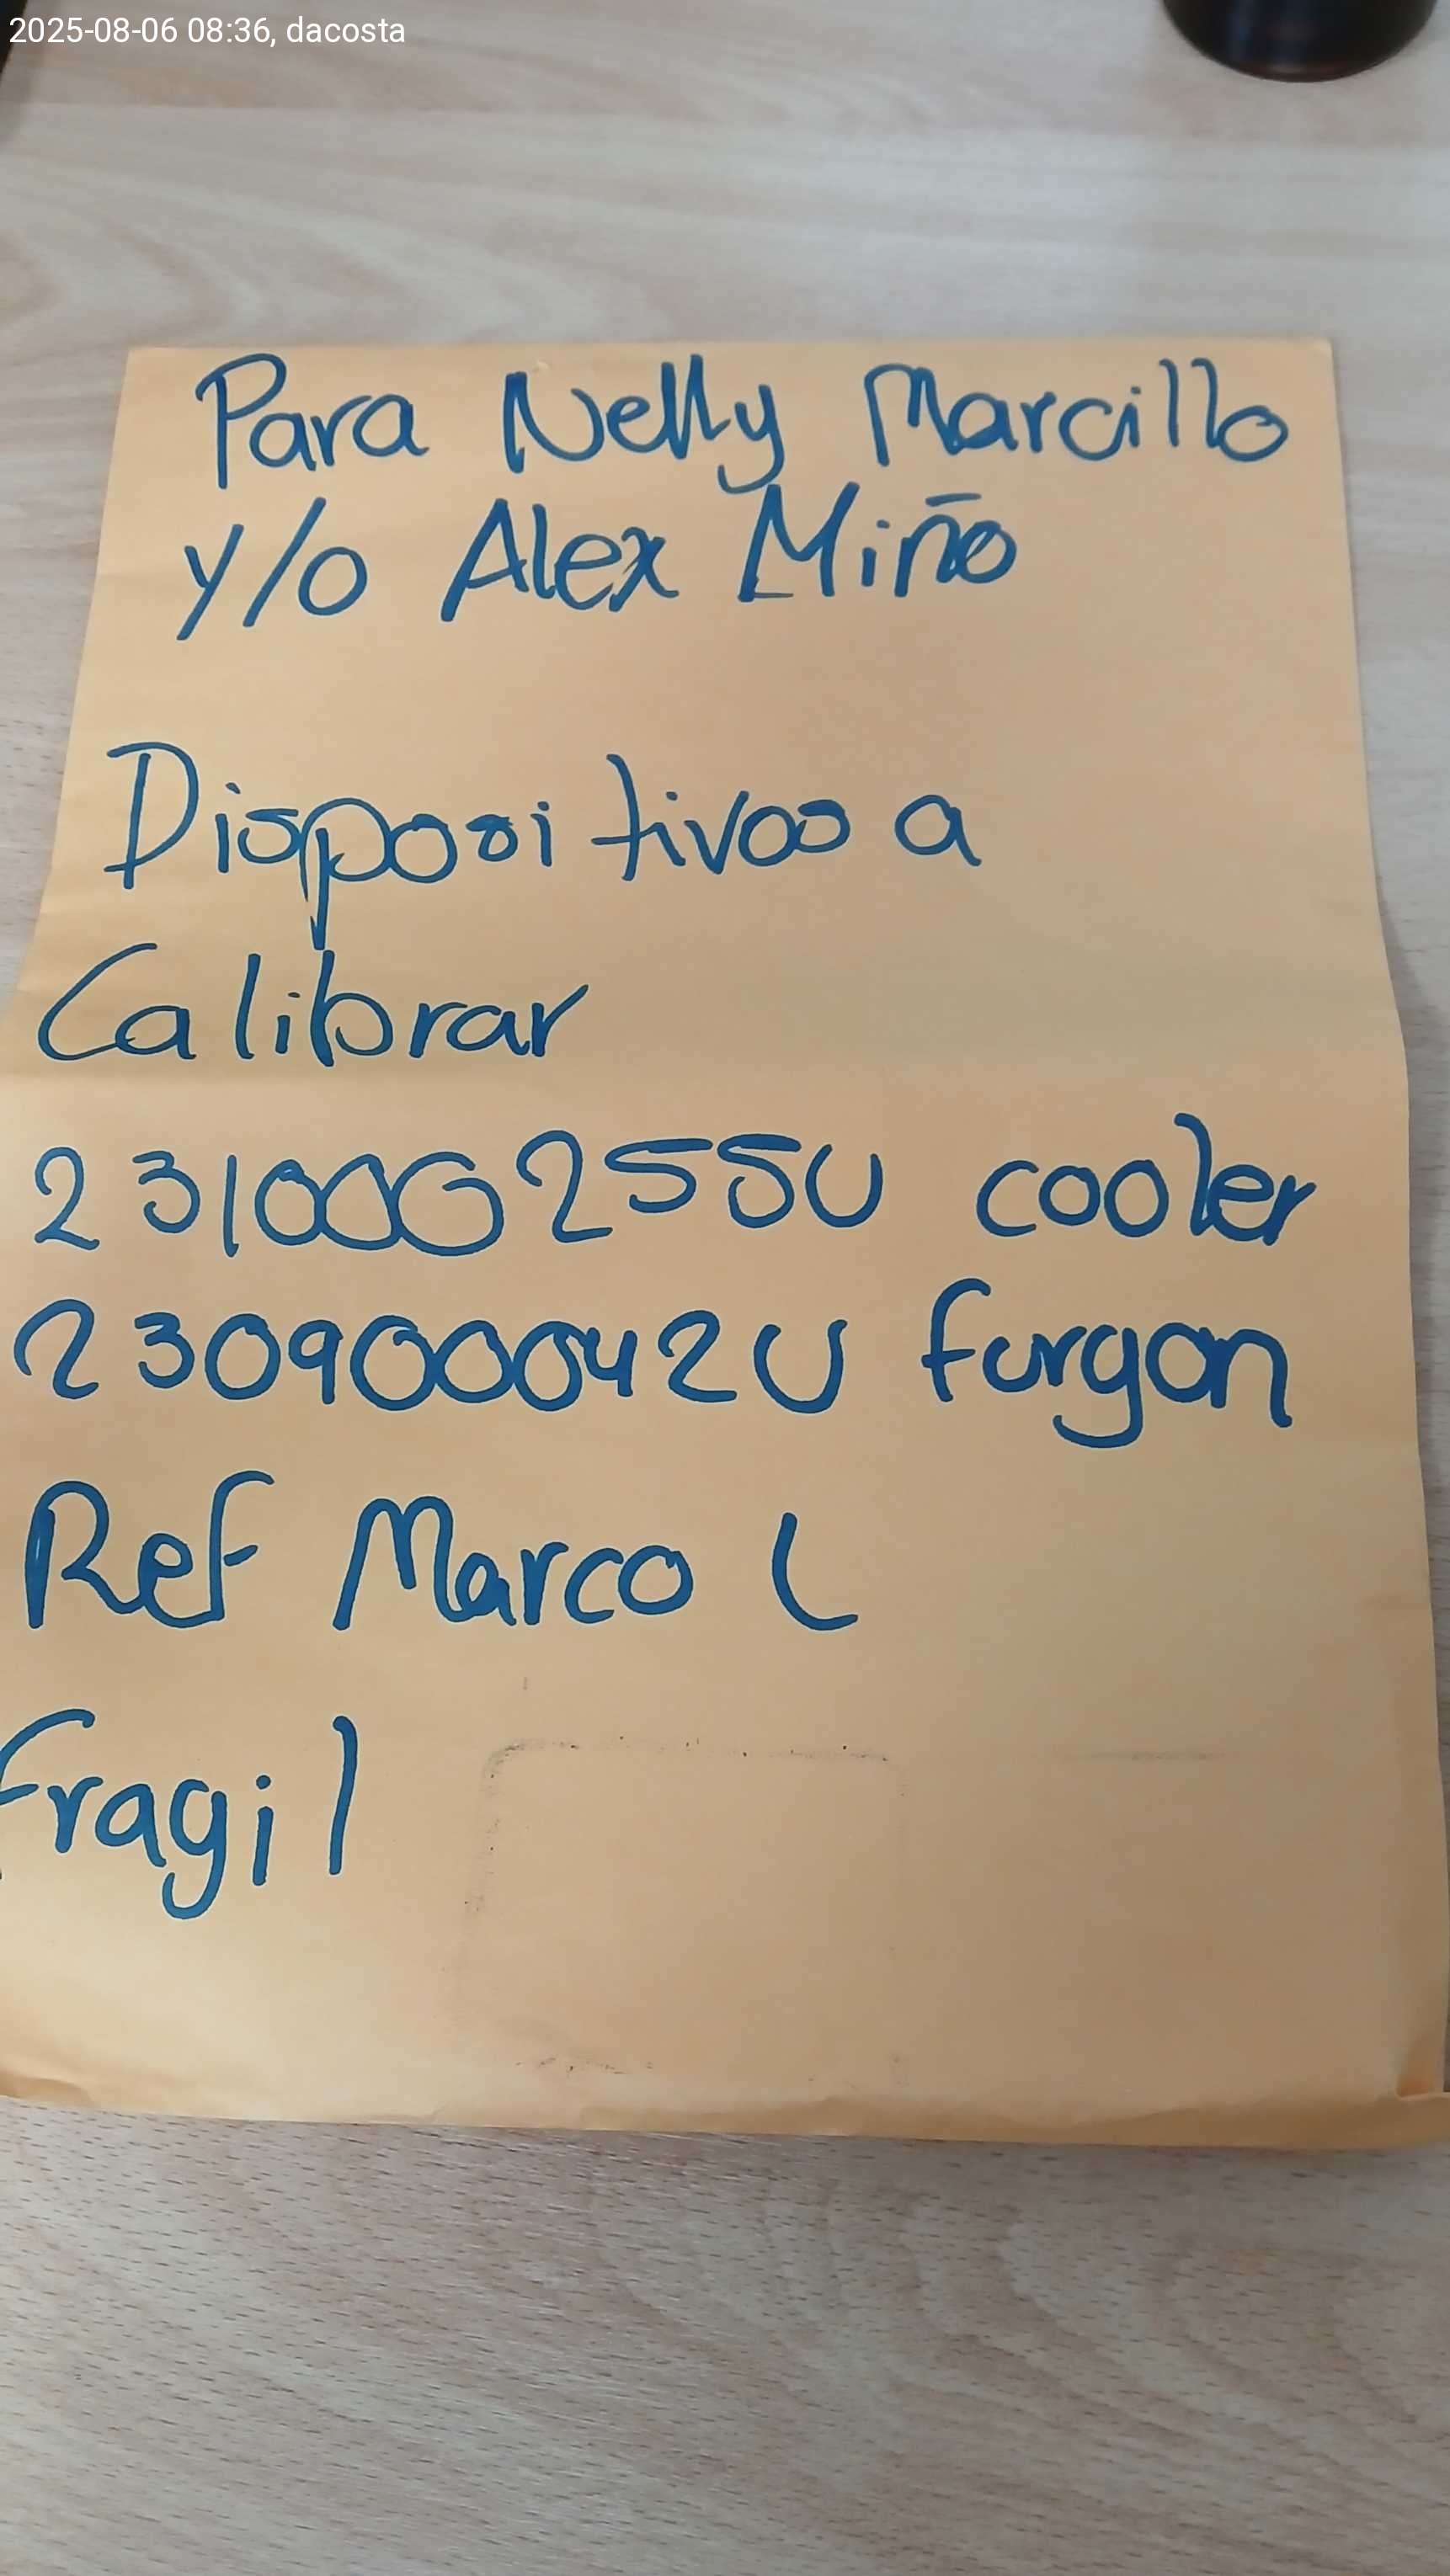 2025-08-06 08:36, dacosta
Para Nelly Marcillo
y/o Alex Miño
Dispositivos a
Calibrar
231000255U cooler
230900042U furgon
Ref Marco L
fragil